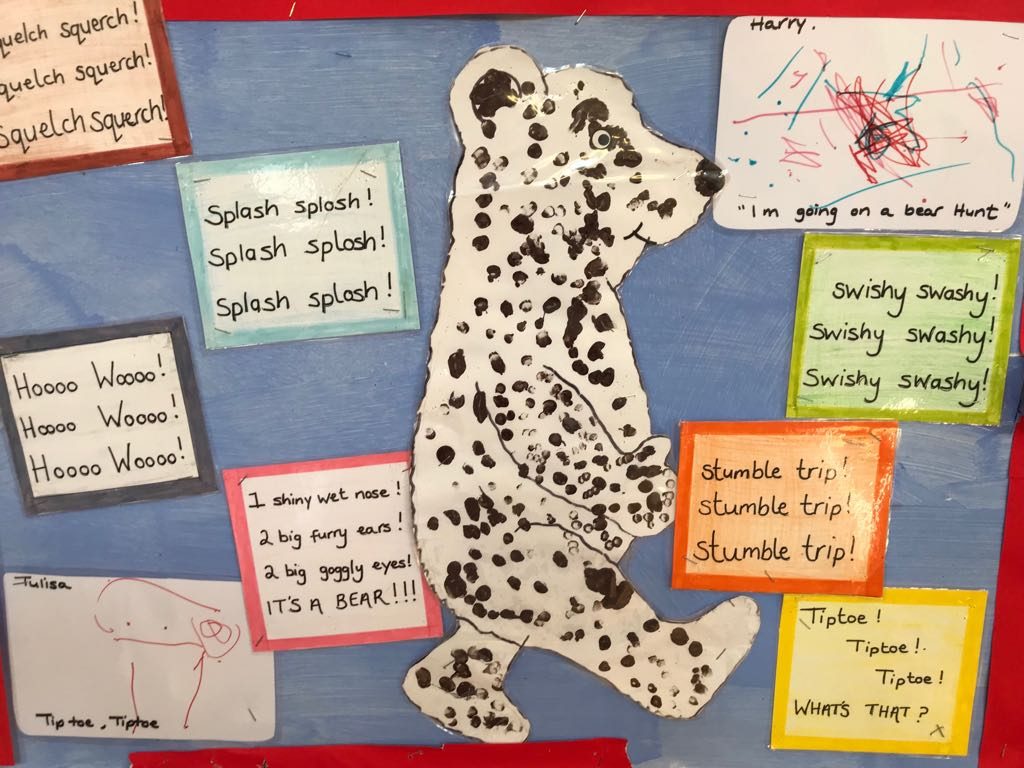 quelch squerch!
quelch squerch!
Squelch squerch!
Splash splosh!
Splash splosh!
Splash splosh!
Hoooo Woooo!
Hoooo Woooo!
Hoooo Woooo!
1 shiny wet nose!
2 big furry ears!
2 big goggly eyes!
IT'S A BEAR!!!
Julisa
Tip toe, Tiptoe
Harry.
"I'm going on a bear Hunt"
Swishy swashy!
Swishy swashy!
Swishy swashy!
stumble trip!
stumble trip!
stumble trip!
Tiptoe!
Tiptoe!
Tiptoe!
WHAT'S THAT?